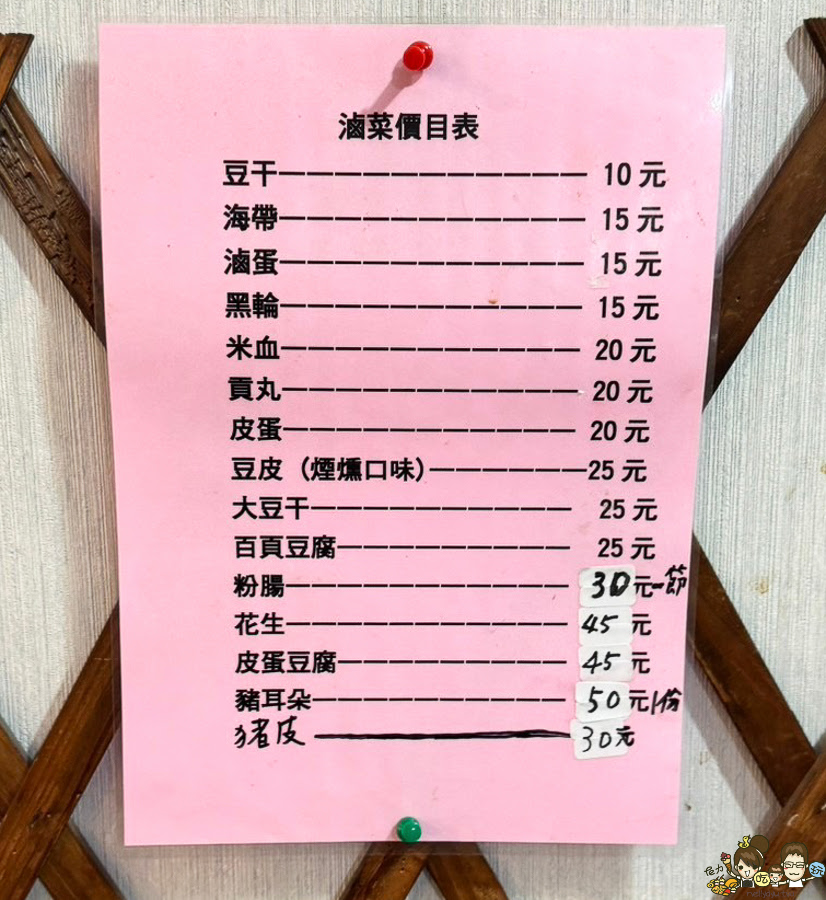 滷菜價目表
豆干———————————— 10元
海帶———————————— 15元
滷蛋———————————— 15元
黑輪———————————— 15元
米血———————————— 20元
貢丸———————————— 20元
皮蛋———————————— 20元
豆皮（煙燻口味）——————25元
大豆干—————————— 25元
百頁豆腐————————— 25元
粉腸——————————— 30元一節
花生——————————— 45元
皮蛋豆腐————————— 45元
豬耳朵—————————— 50元/份
豬皮 ——————— 30元